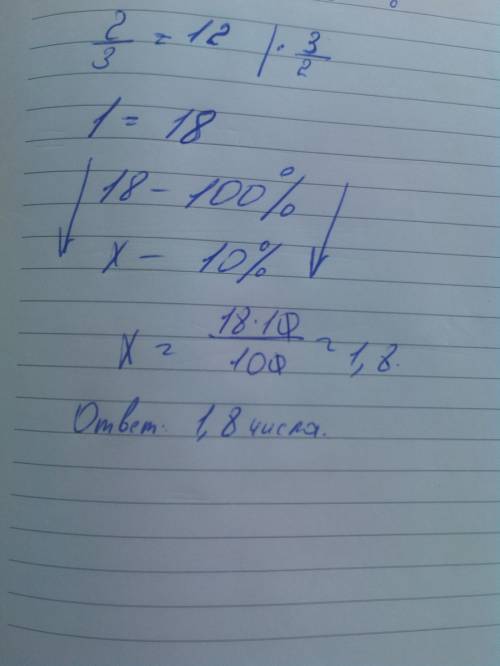 2/3 = 12 | · 3/2
1 = 18
18 – 100%
x – 10%
x = 18·10/100 = 1,8.
Ответ. 1,8 числа.